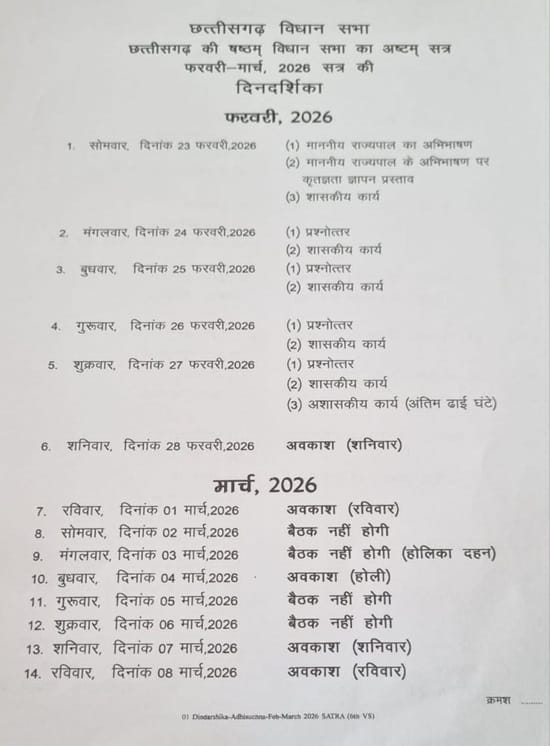 छत्तीसगढ़ विधान सभा
छत्तीसगढ़ की षष्ठम् विधान सभा का अष्टम् सत्र
फरवरी–मार्च, 2026 सत्र की
दिनदर्शिका
फरवरी, 2026
1. सोमवार, दिनांक 23 फरवरी,2026 (1) माननीय राज्यपाल का अभिभाषण
(2) माननीय राज्यपाल के अभिभाषण पर
कृतज्ञता ज्ञापन प्रस्ताव
(3) शासकीय कार्य
2. मंगलवार, दिनांक 24 फरवरी,2026 (1) प्रश्नोत्तर
(2) शासकीय कार्य
3. बुधवार, दिनांक 25 फरवरी,2026 (1) प्रश्नोत्तर
(2) शासकीय कार्य
4. गुरूवार, दिनांक 26 फरवरी,2026 (1) प्रश्नोत्तर
(2) शासकीय कार्य
5. शुक्रवार, दिनांक 27 फरवरी,2026 (1) प्रश्नोत्तर
(2) शासकीय कार्य
(3) अशासकीय कार्य (अंतिम ढाई घंटे)
6. शनिवार, दिनांक 28 फरवरी,2026 अवकाश (शनिवार)
मार्च, 2026
7. रविवार, दिनांक 01 मार्च,2026 अवकाश (रविवार)
8. सोमवार, दिनांक 02 मार्च,2026 बैठक नहीं होगी
9. मंगलवार, दिनांक 03 मार्च,2026 बैठक नहीं होगी (होलिका दहन)
10. बुधवार, दिनांक 04 मार्च,2026 अवकाश (होली)
11. गुरूवार, दिनांक 05 मार्च,2026 बैठक नहीं होगी
12. शुक्रवार, दिनांक 06 मार्च,2026 बैठक नहीं होगी
13. शनिवार, दिनांक 07 मार्च,2026 अवकाश (शनिवार)
14. रविवार, दिनांक 08 मार्च,2026 अवकाश (रविवार)
क्रमश ........
01 Dindarshika-Adhisuchna-Feb-March 2026 SATRA (6th VS)